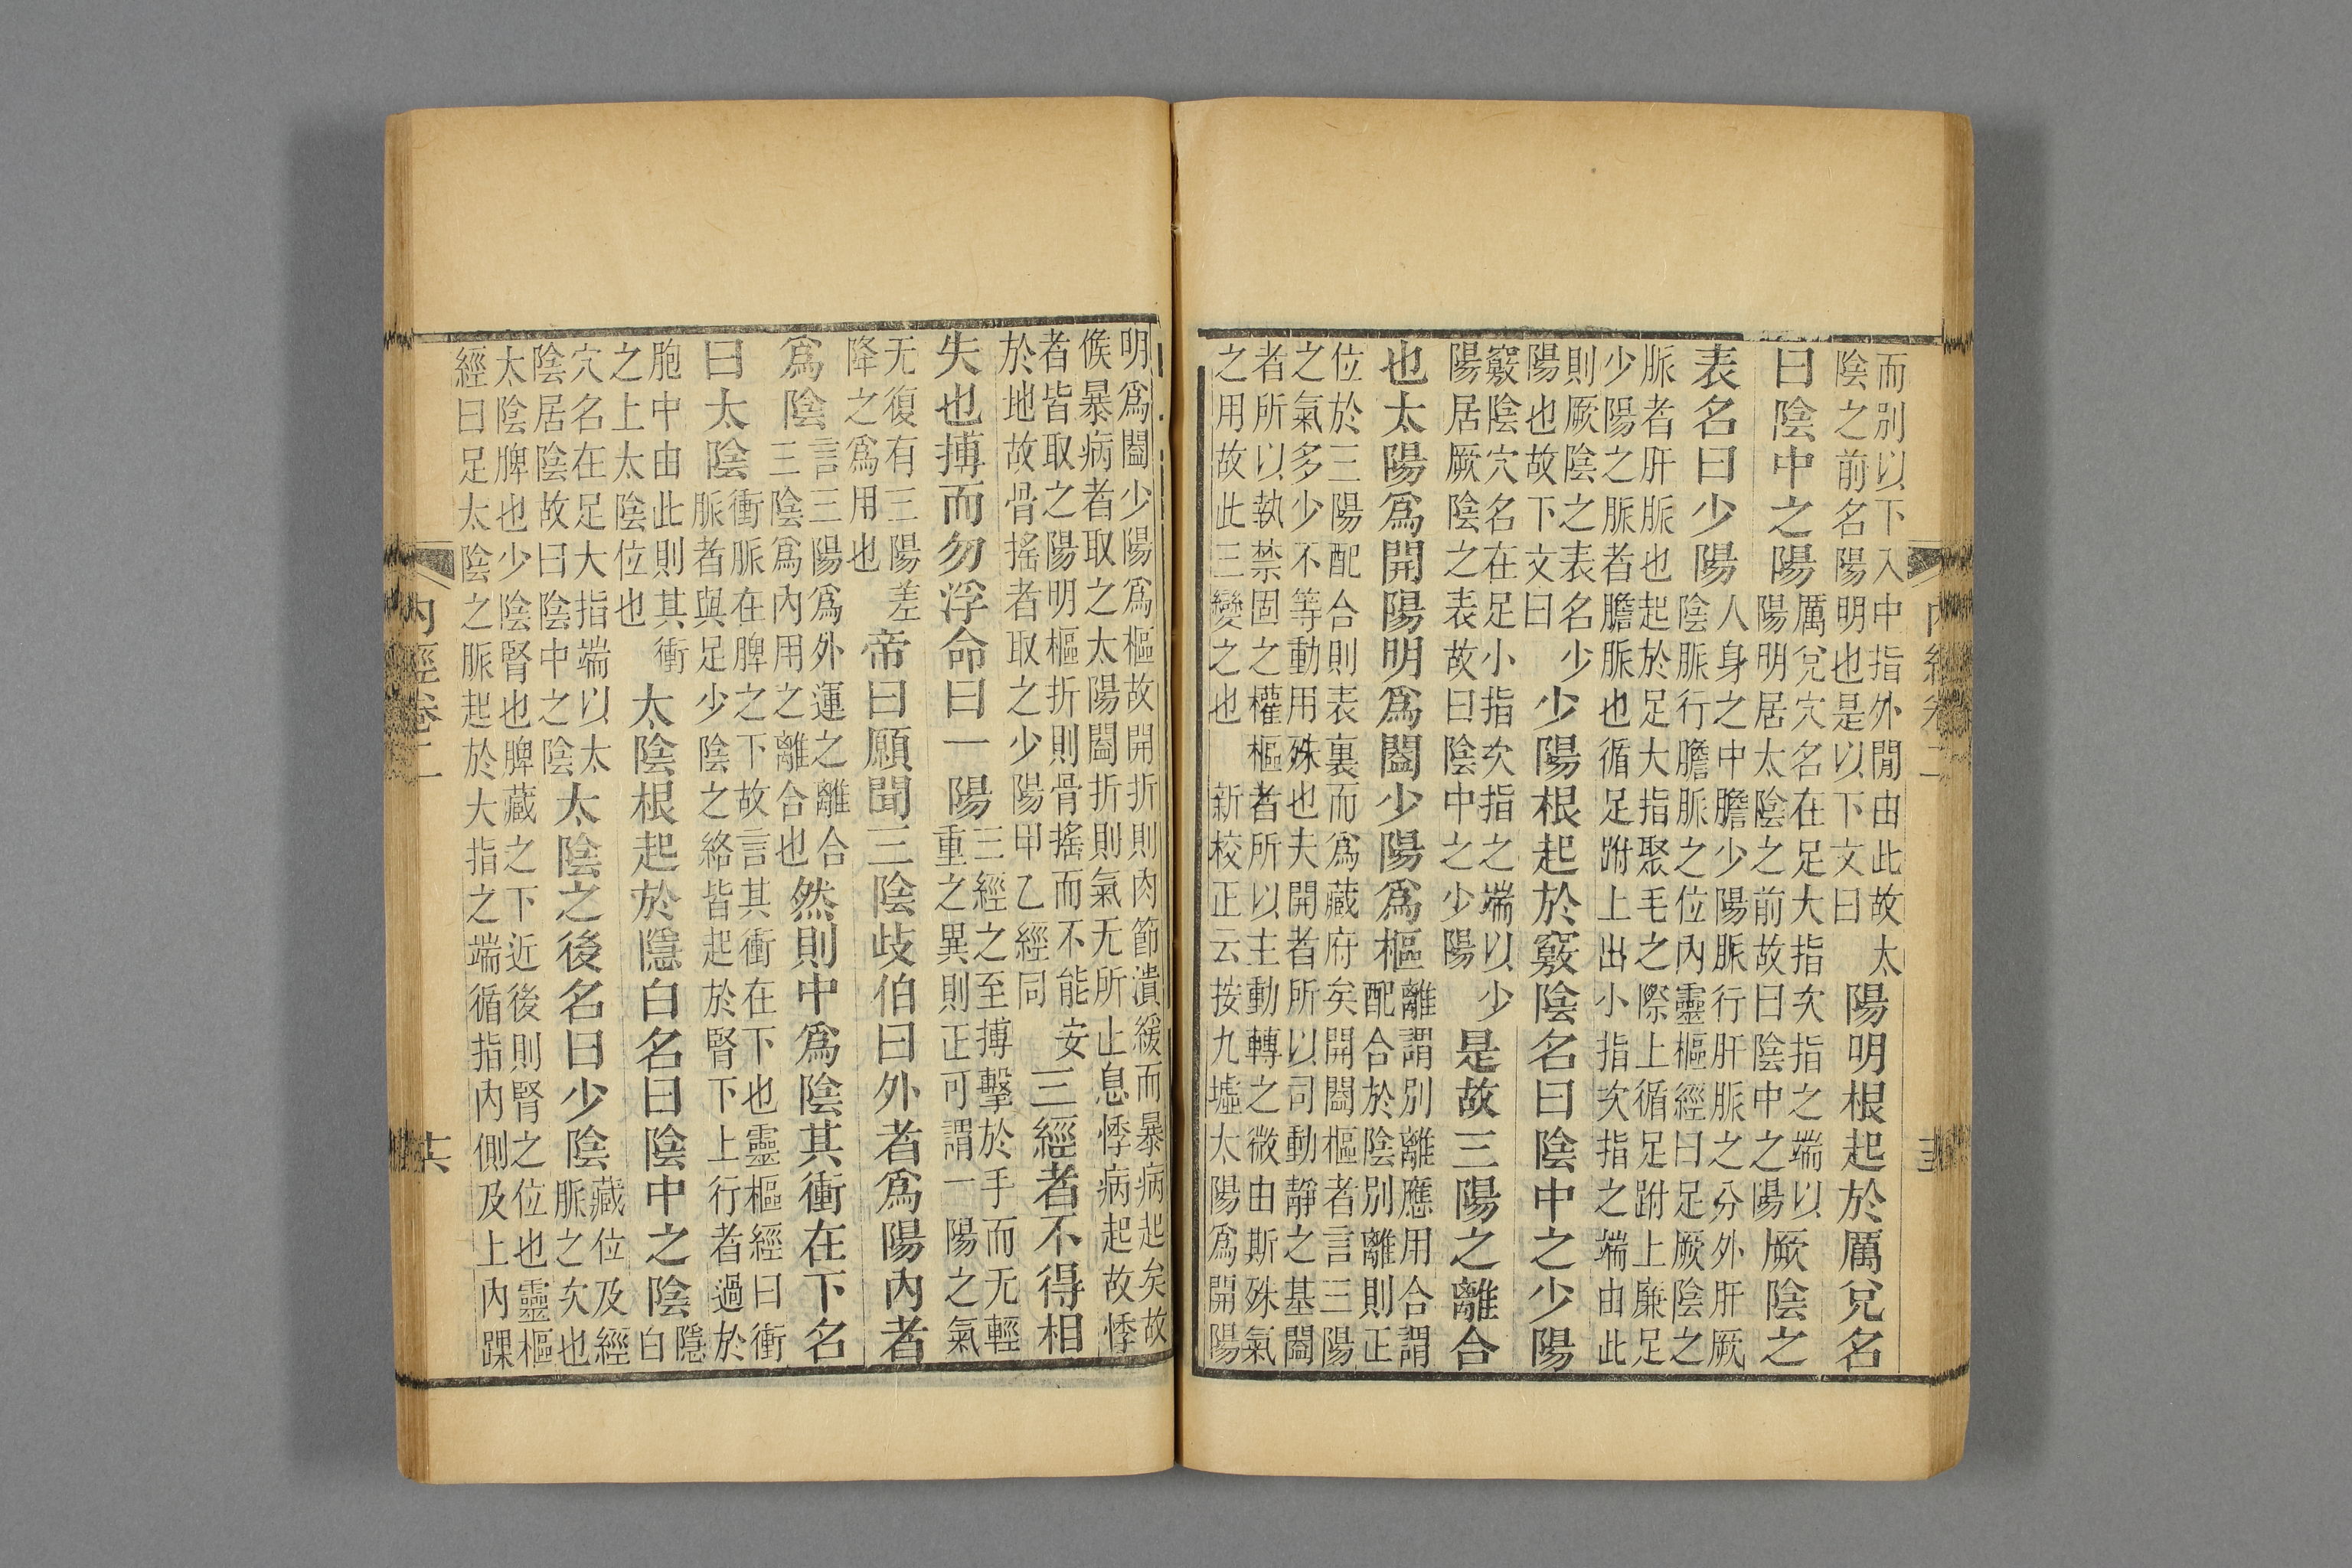 而別以下入中指外閒由此故太
陰之前名陽明也是以下文曰
陽明根起於厲兌名
曰陰中之陽
厲兌穴名在足大指次指之端以
陽明居太陰之前故曰陰中之陽
厥陰之
表名曰少陽
人身之中膽少陽脈行肝脈之分外肝厥
陰脈行膽脈之位內靈樞經曰足厥陰之
脈者肝脈也起於足大指聚毛之際上循足跗上廉足
少陽之脈者膽脈也循足跗上出小指次指之端由此
則厥陰之表名少
陽也故下文曰
少陽根起於竅陰名曰陰中之少陽
竅陰穴名在足小指次指之端以少
陽居厥陰之表故曰陰中之少陽
是故三陽之離合
也太陽爲開陽明爲闔少陽爲樞
離謂別離應用合謂
配合於陰別離則正
位於三陽配合則表裏而爲藏府矣開闔樞者言三陽
之氣多少不等動用殊也夫開者所以司動靜之基闔
者所以執禁固之權樞者所以主動轉之微由斯殊氣
之用故此三變之也 新校正云按九墟太陽爲開陽
明爲闔少陽爲樞故開折則肉節潰緩而暴病起矣故
候暴病者取之太陽闔折則氣无所止息悸病起故悸
者皆取之陽明樞折則骨搖而不能安
於地故骨搖者取之少陽甲乙經同
三經者不得相
失也搏而勿浮命曰一陽
三經之至搏擊於手而无輕
重之異則正可謂一陽之氣
无復有三陽差
降之爲用也
帝曰願聞三陰歧伯曰外者爲陽內者
爲陰
言三陽爲外運之離合
三陰爲內用之離合也
然則中爲陰其衝在下名
曰太陰
衝脈在脾之下故言其衝在下也靈樞經曰衝
脈者與足少陰之絡皆起於腎下上行者過於
胞中由此則其衝
之上太陰位也
太陰根起於隱白名曰陰中之陰
隱
白
穴名在足大指端以太
陰居陰故曰陰中之陰
太陰之後名曰少陰
藏位及經
脈之次也
太陰脾也少陰腎也脾藏之下近後則腎之位也靈樞
經曰足太陰之脈起於大指之端循指內側及上內踝
內經卷二
十六